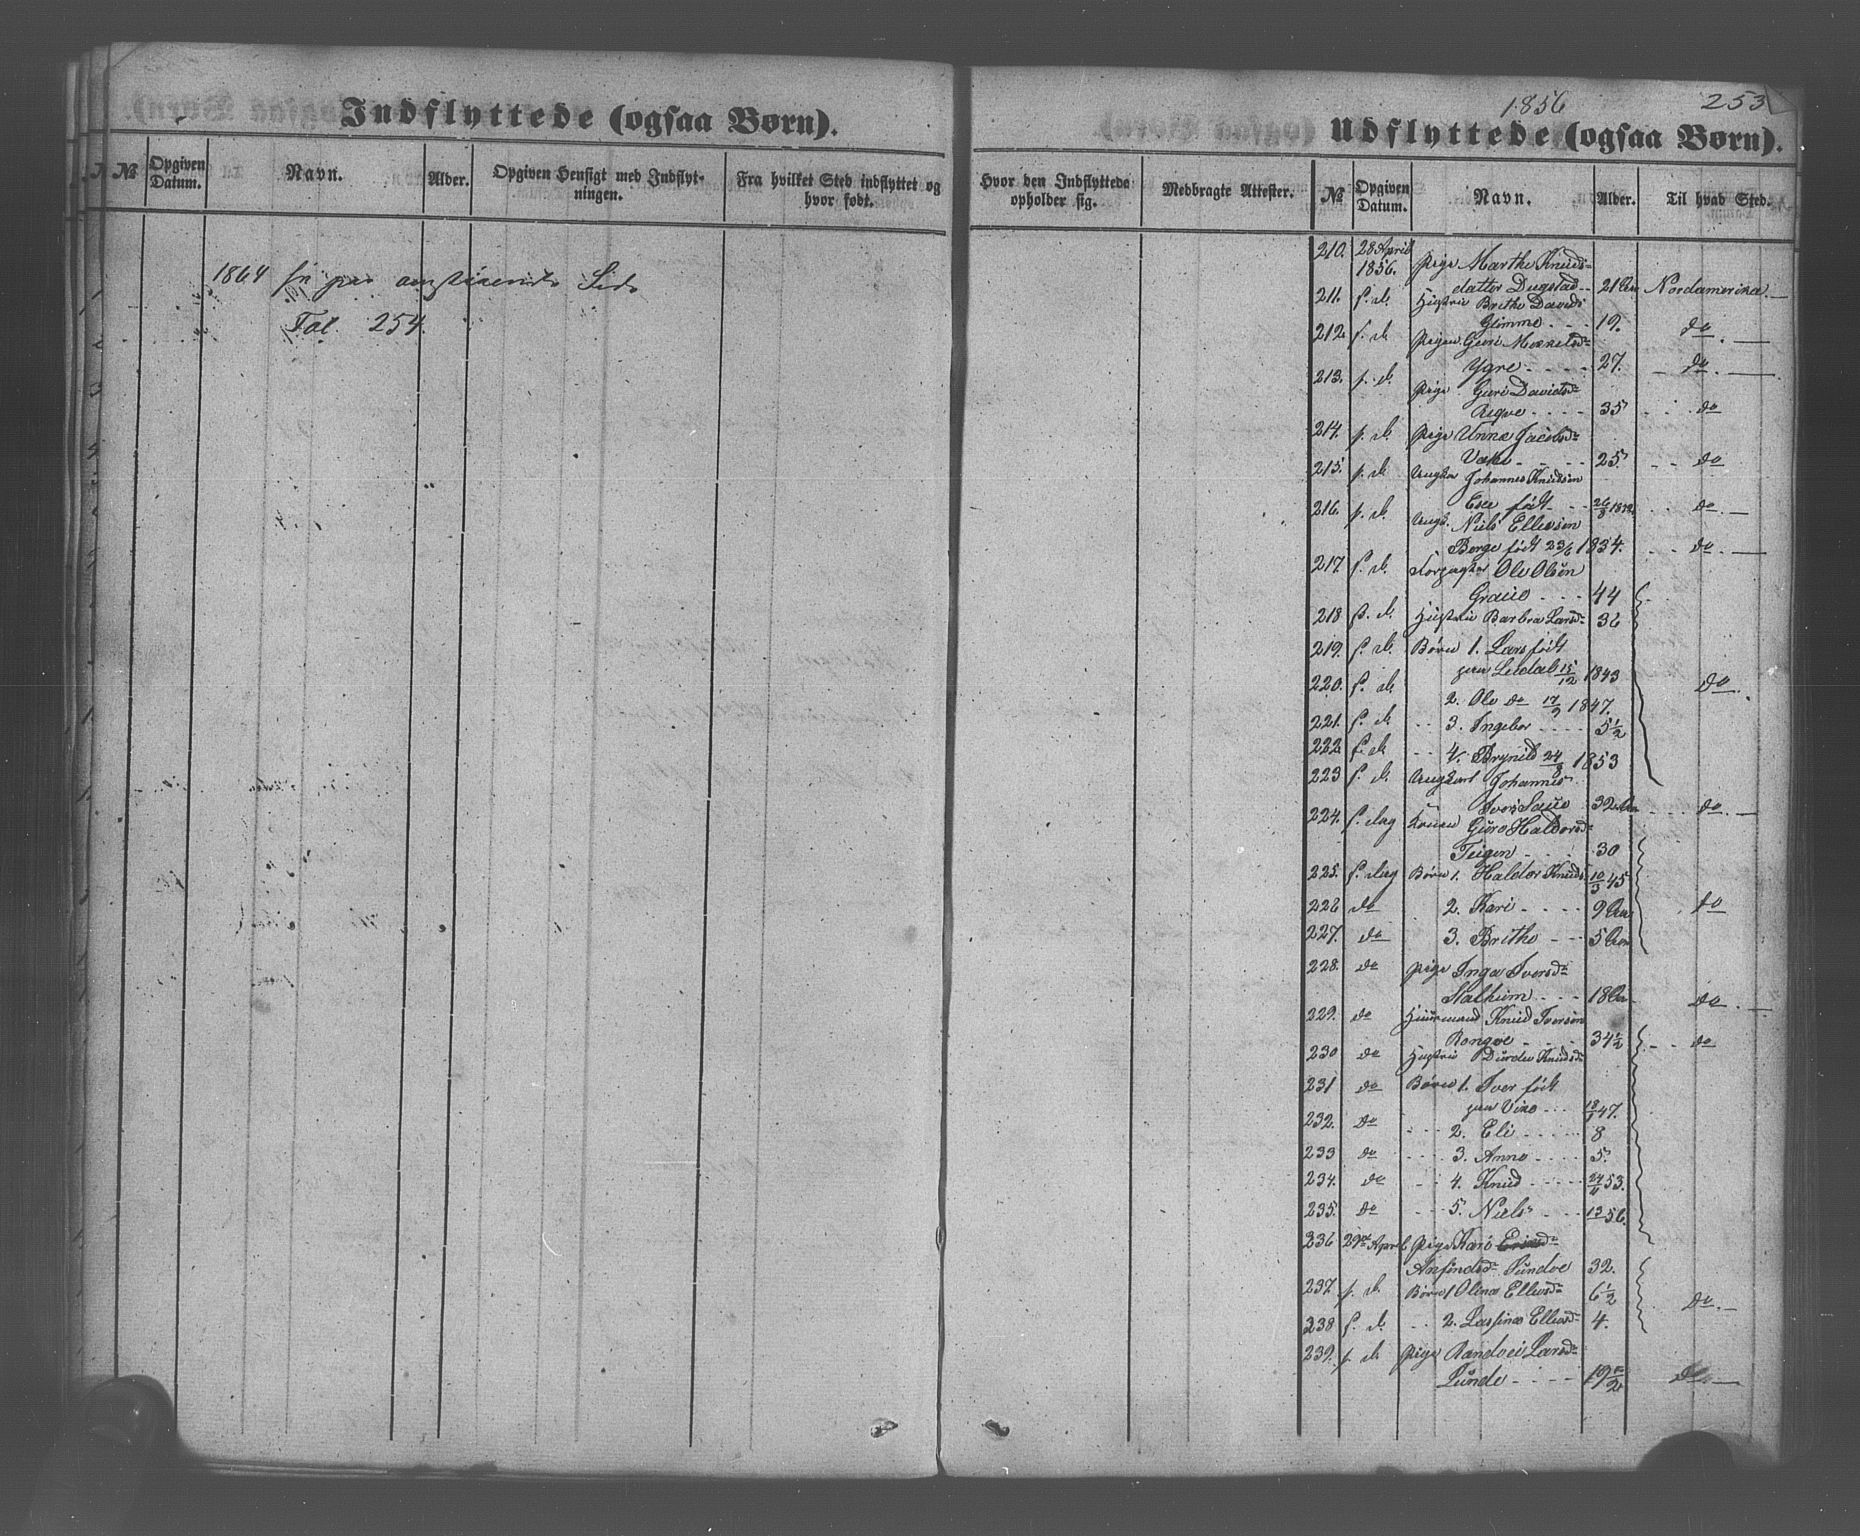 Indflyttede (ogsaa Børn).
№
Opgiven Datum.
Navn.
Alder.
Opgiven Hensigt med Indflyt-
ningen.
Fra hvilket Sted indflyttet og
hvor født.
1864 paa Side
Fol. 254.
1856
253
Udflyttede (ogsaa Børn).
Hvor den Indflyttede
opholder sig.
Medbragte Attester.
№
Opgiven Datum.
Navn.
Alder.
Til hvad Sted.
210. 28 April 1856. Pige Marthe Knuds-
datter Dugstad 21 Nordamerika.
211. s. d. Hustrue Brithe Davids
Glimme 19. do
212. s. d. Pigen Guri Mikkelsd
Ygre 27. do
213. s. d. Pige Guri Davidsd
Reqve 35 do
214. s. d. Pige Anna Jacobsd
25 do
215. s. d. Johannes Knudsen
født do
216. s. d. Ungk. Niels Ellevsen
Berge født 23/6 1834. do
217. s. d. Ole Olsen
Graue 44
218 s. d. Hustrue Barbra Larsd 36
219. s. d. Børn 1. Lars født
paa 15/12 1843
220. s. d. 2. Ole do 17/9 1847. do
221. s. d. 3. Ingebor 5 1/2
222 s. d. 4. Brynild 1853
223 s. d. Ungkarl Johannes
Ivers Saue 32 do
224. s. dag Konen Guro Haldorsd
Teigen 30
225. s. dag Børn 1. Haldor Knuds 10/3 45
226 do 2. Kari 9 do
227. do 3. Brithe 5
228. do Pige Inga Iversd
Stalheim 18 do
229. do Huusmand Knud Iversen
Rongve 34 1/2 do
230 do Hustrue Durdei Knudsd
231 do Børn 1. Iver født
paa 47.
232. do 2. Eli 8
233 do 3. Anne 5.
234. do 4. Knud 53.
235. do 5. Niels 56.
236 29 April Pige Kari
Anfindsd Sundve 32.
237. s. d. Børn 1 Olina Ellevsd 6 1/2 do
238 s. d. 2. Ellevsd 4.
239. s. d. Pige Randvei Larsd
Lunde 19 do